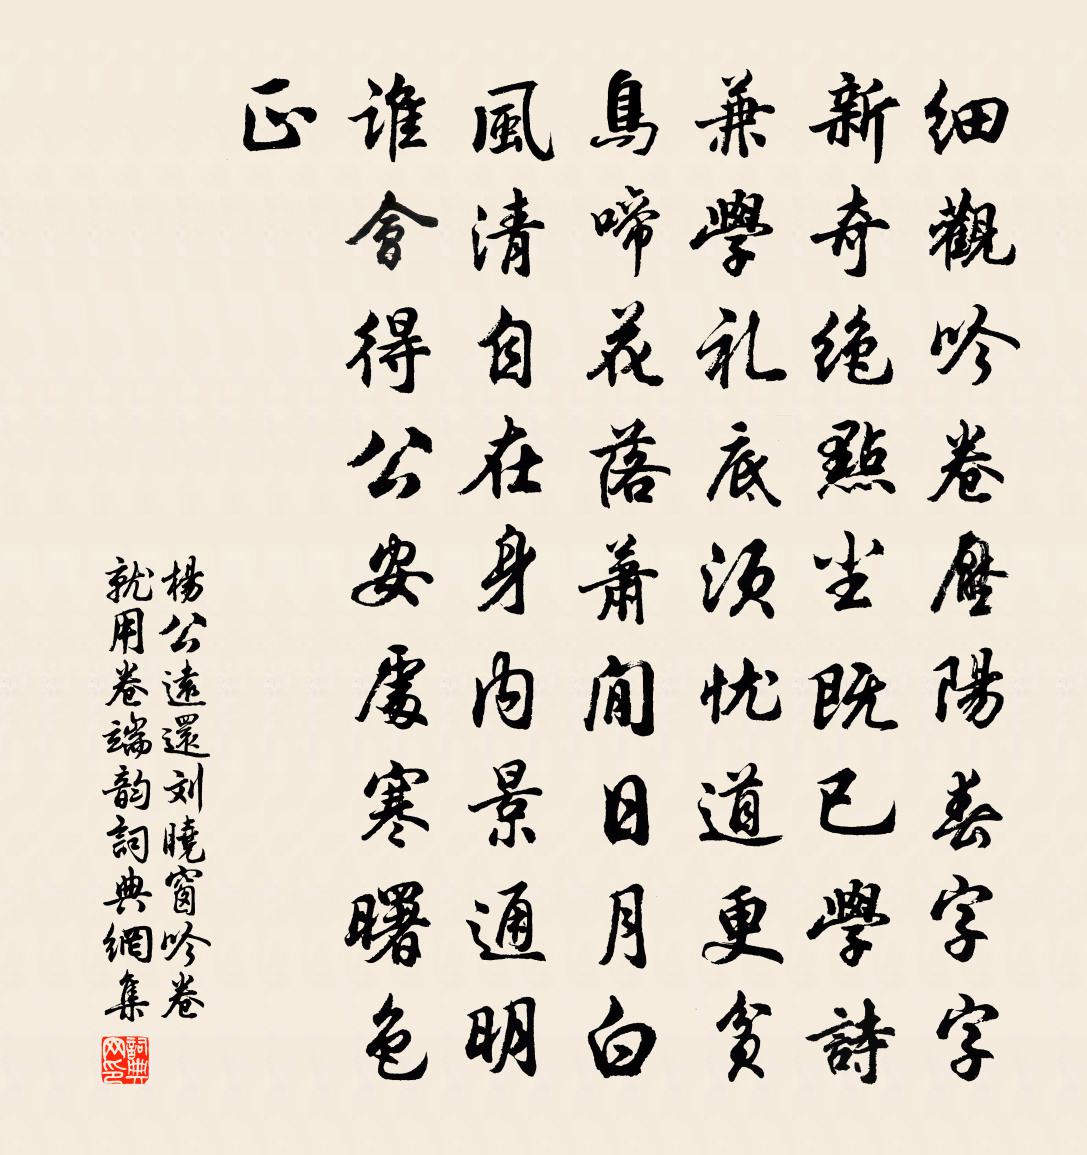 細觀吟卷壓陽春字字
新奇絶點尘既已學詩
兼學礼底須忧道更貧
鳥啼花落蕭閒日月白
風清自在身内景通明
誰會得公安處寒曙色
正
楊公遠還刘曉窗吟卷
就用卷端韵詞典網集
詞典网印